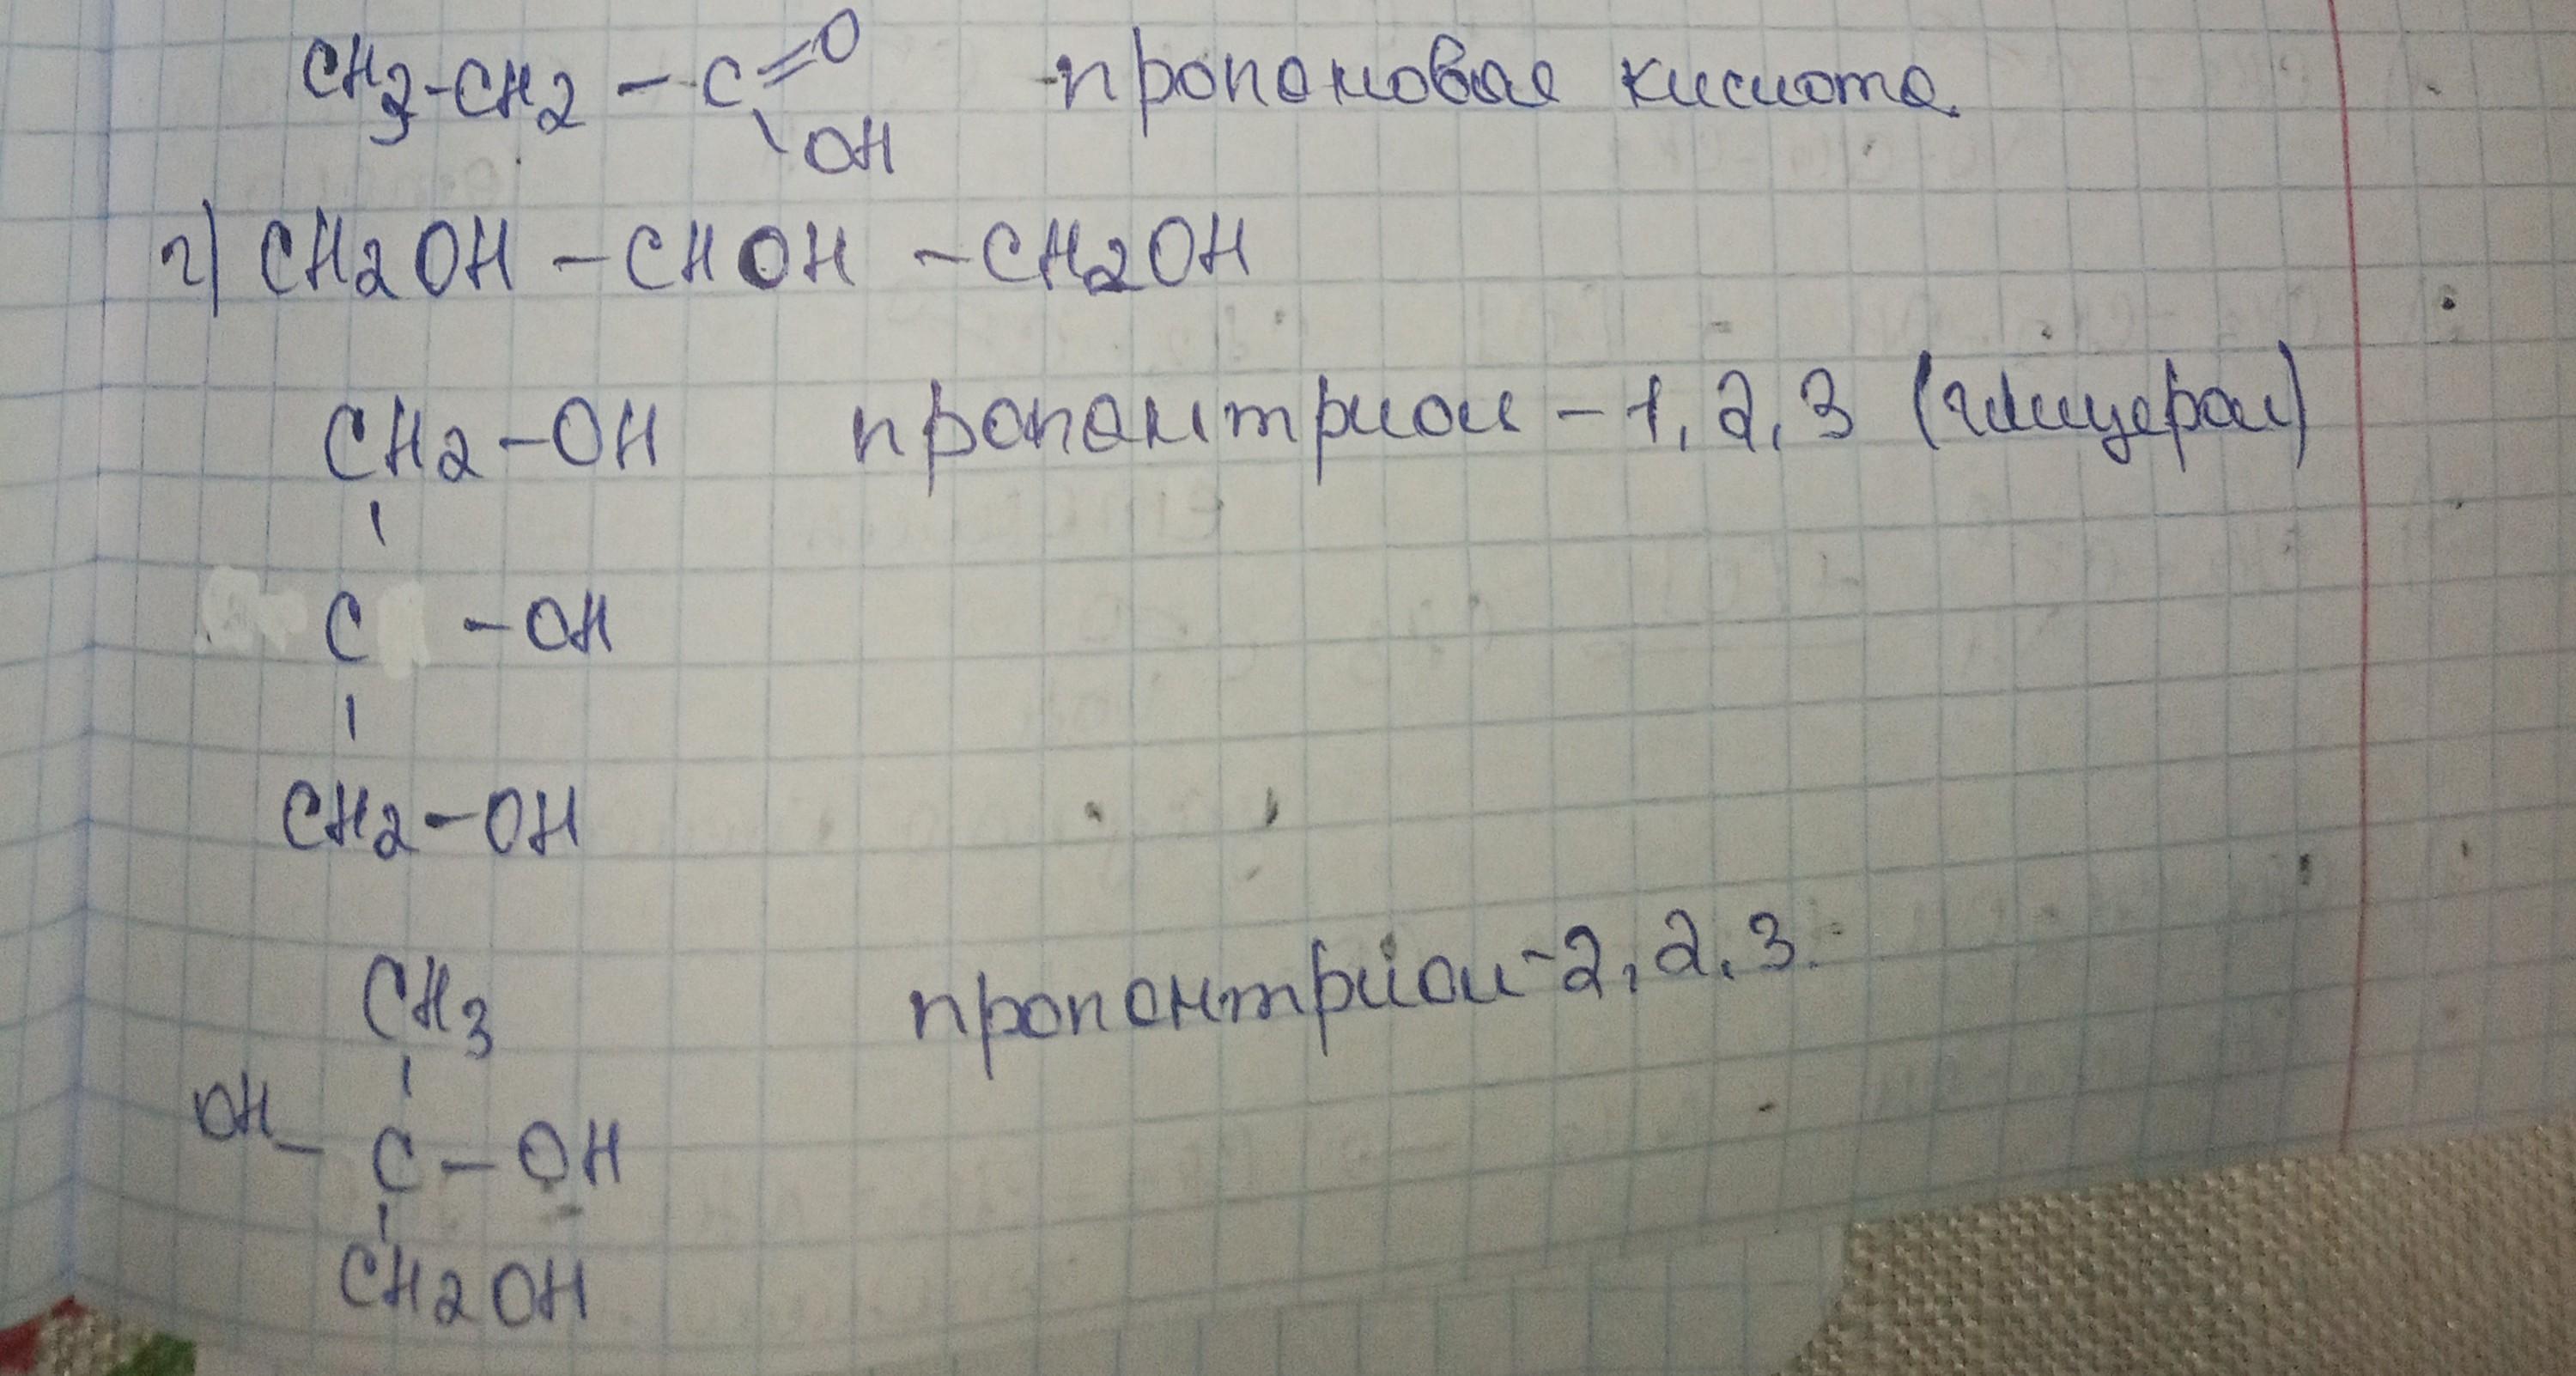 CH3-CH2-C=O пропановая кислота
\OH
г) CH2OH-CHOH-CH2OH
CH2-OH пропантриол-1,2,3 (глицерол)
|
C -OH
|
CH2-OH
CH3 пропантриол-2,2,3.
|
OH-C-OH
|
CH2OH